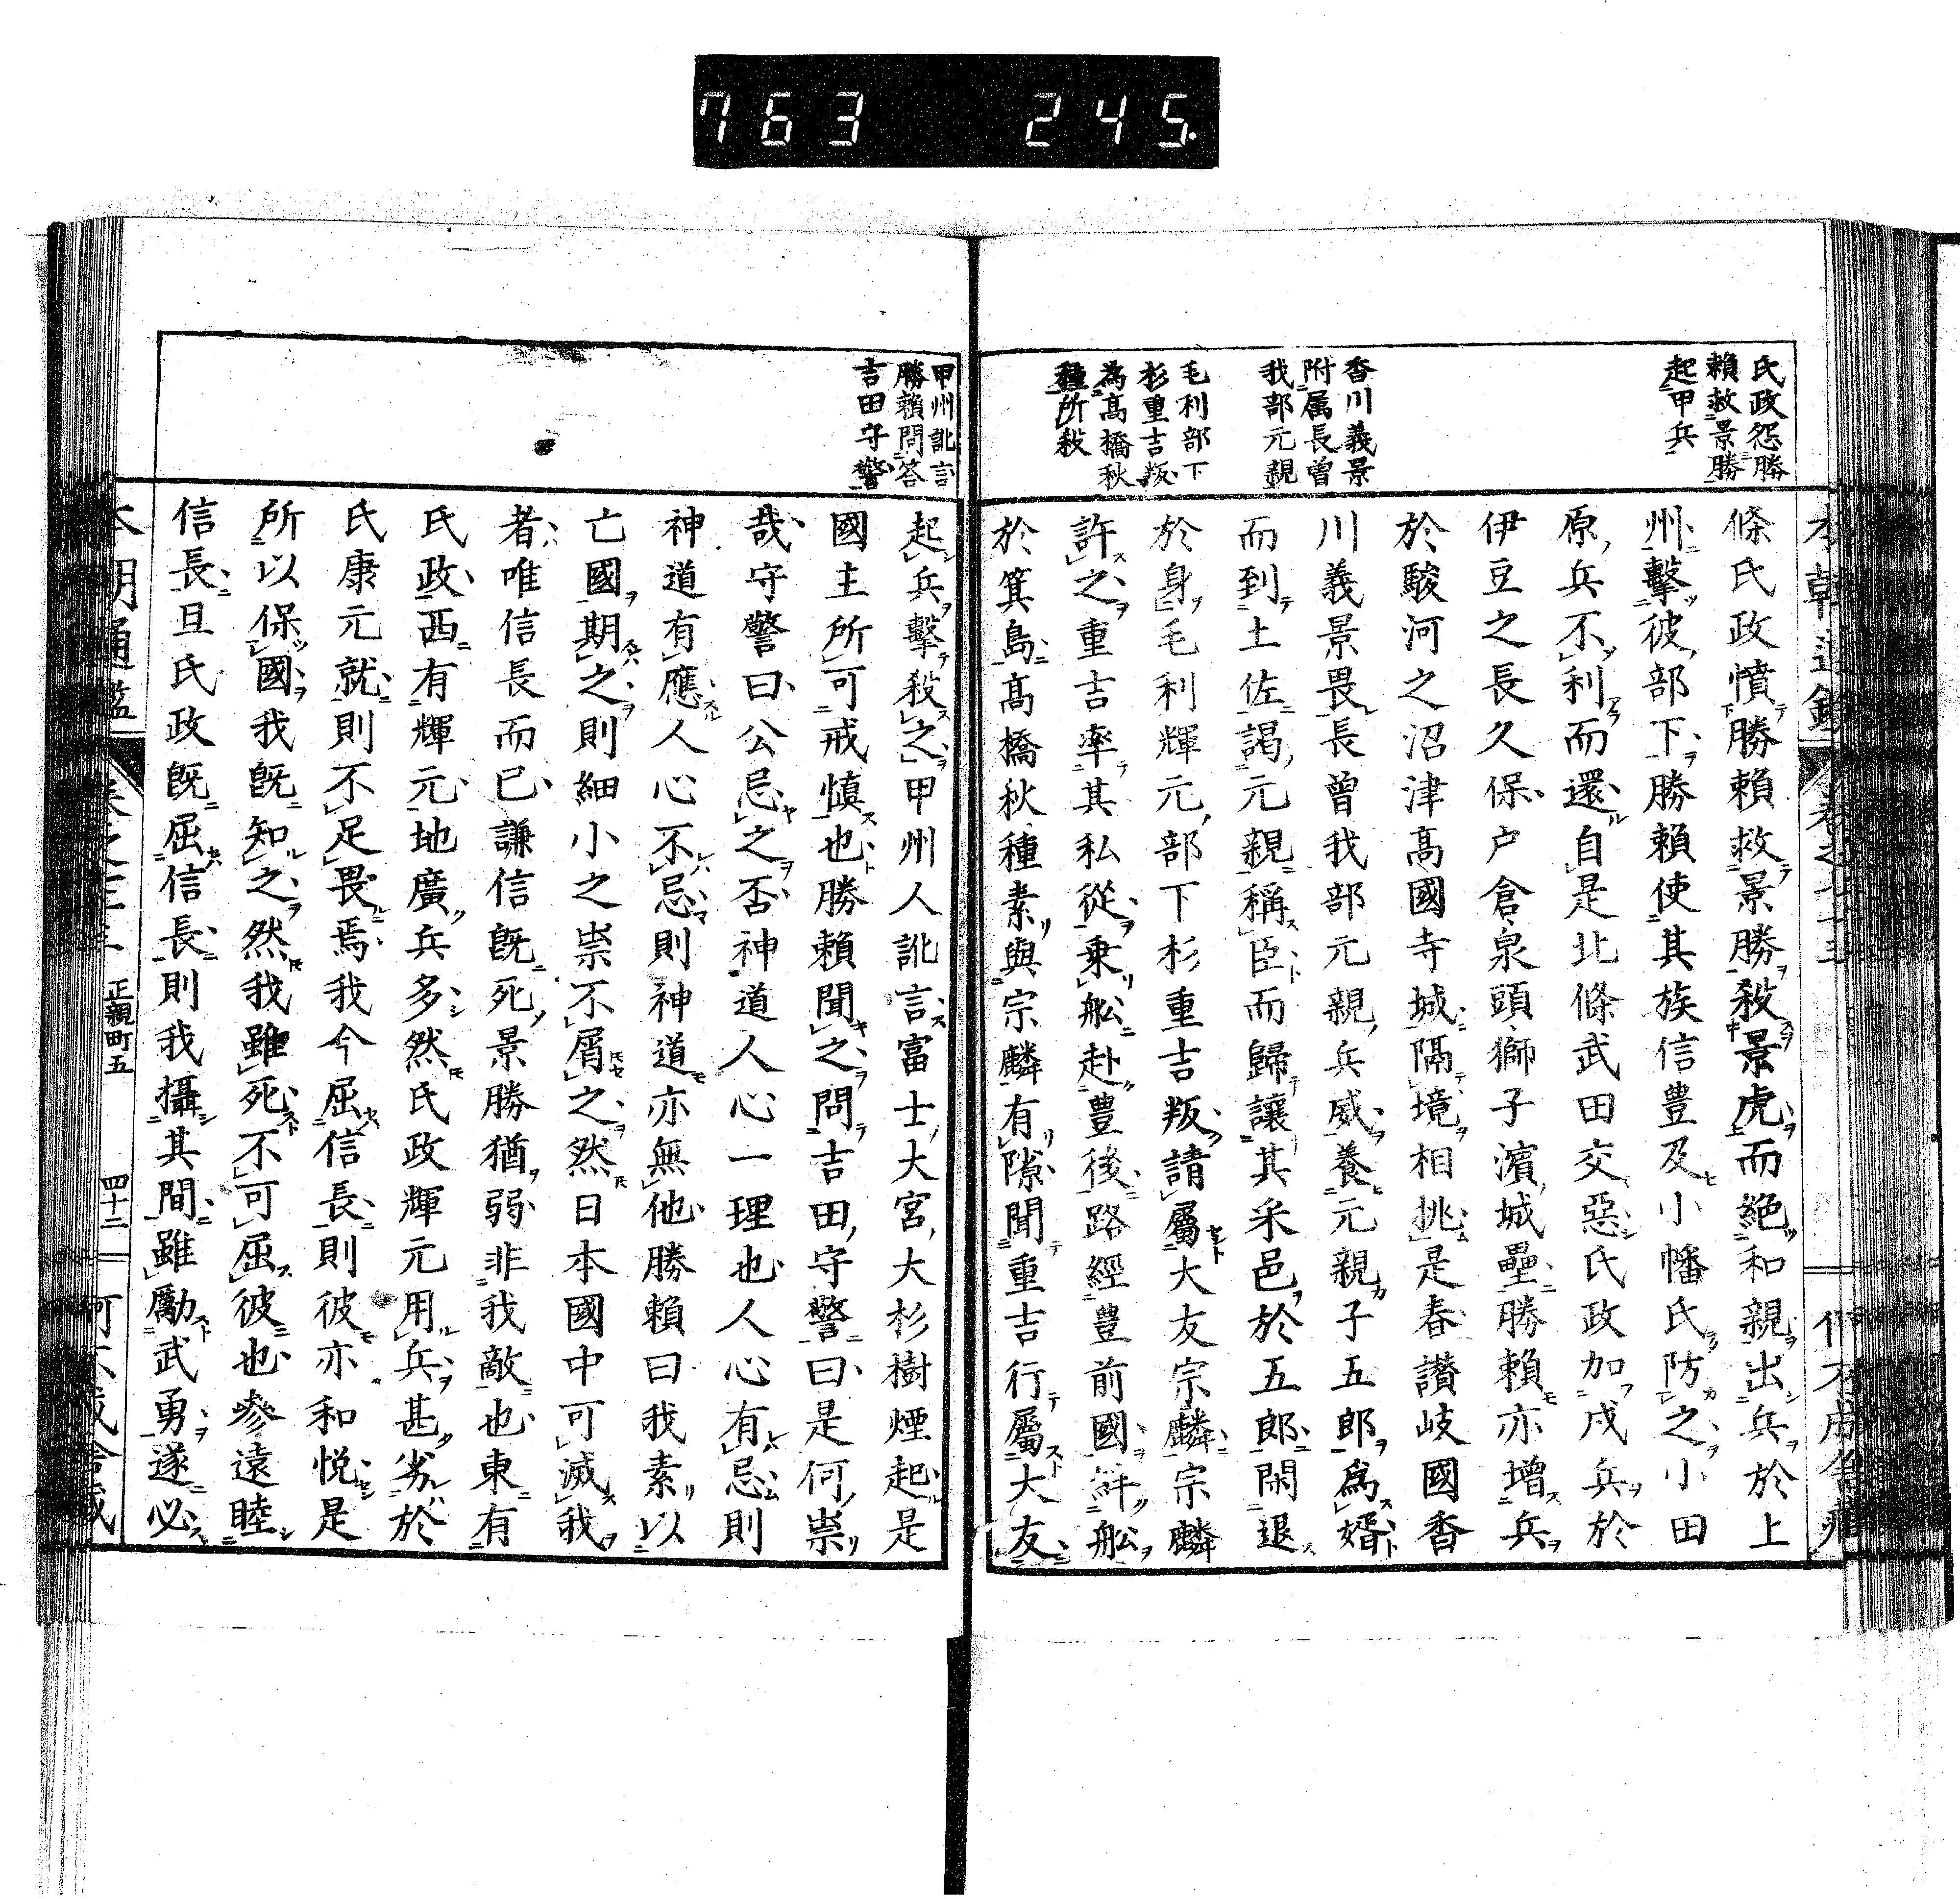 763 245.
氏政怨勝
賴救景勝
起甲兵
香川義景
附属長曽
我部元親
毛利部下
杉重吉叛
為髙橋秋
種所殺
條氏政憤勝賴救景勝殺景虎而絶和親出兵於上
州擊彼部下勝賴使其族信豊及小幡氏防之小田
原兵不利而還自是北條武田交惡氏政加戍兵於
伊豆之長久保戸倉泉頭獅子濵城壘勝賴亦增兵
於駿河之沼津髙國寺城隔境相挑是春讃岐國香
川義景畏長曽我部元親兵威養元親子五郎爲婿
而到土佐謁元親稱臣而歸讓其采邑於五郎閑退
於身毛利輝元部下杉重吉叛請屬大友宗麟宗麟
許之重吉率其私從乗舩赴豊後路經豊前國艤舩
於箕島髙橋秋種素與宗麟有隙聞重吉行屬大友
甲州訛言
勝賴問答
吉田守警
起兵擊殺之甲州人訛言富士大宮大杉樹煙起是
國主所可戒慎也勝賴聞之問吉田守警曰是何祟
哉守警曰公忌之否神道人心一理也人心有忌則
神道有應人心不忌則神道亦無他勝賴曰我素以
亡國期之則細小之祟不屑之然日本國中可滅我
者唯信長而已謙信旣死景勝猶弱非我敵也東有
氏政西有輝元地廣兵多然氏政輝元用兵甚劣於
氏康元就則不足畏焉我今屈信長則彼亦和悦是
所以保國我旣知之然我雖死不可屈彼也參遠睦
信長且氏政旣屈信長則我攝其間雖勵武勇遂必
正親町五
四十二